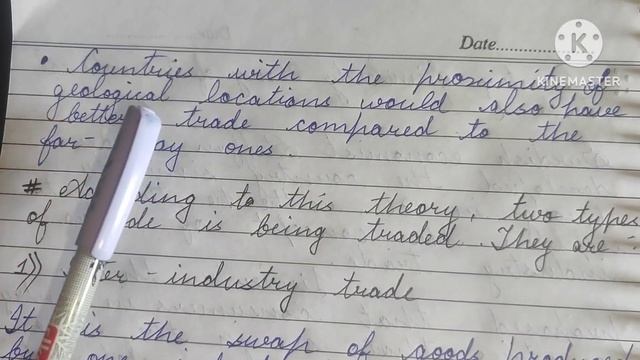 Date..............
KINEMASTER
• Countries with the proximity of
geological locations would also have
better trade compared to the
far- ay ones.
# ding to this theory, two types
of is being traded. They are :-
1) -industry trade
It is the swap of goods produced
by one